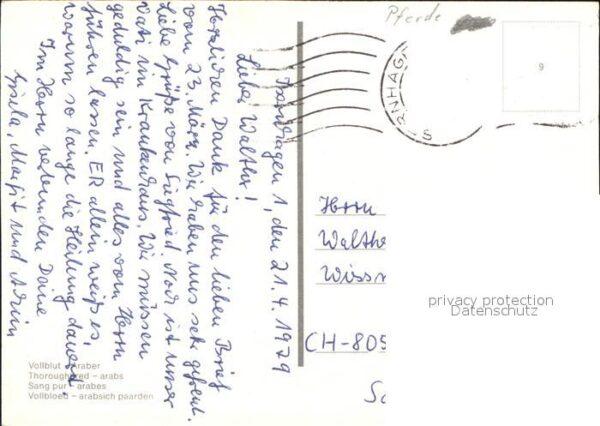 Pferde
9
RNHAG
S
Isernhagen 1, den 21.4.1979
Lieber Walther!
Herzlichen Dank für den lieben Brief
vom 23. März. Wir haben uns sehr gefreut.
Liebe Grüße von Siegfried. Noch ist unser
Vati im Krankenhaus. Wir müssen
geduldig sein und alles vom Herrn
führen lassen. ER allein weiß es,
warum so lange die Heilung dauert.
Im Herrn verbunden Deine
Gisela, und Armin
Herrn
Walthe
Wissm
CH-805
privacy protection
Datenschutz
Vollblut - Araber
Thoroughbred - arabs
Sang pur - arabes
Vollbloed - arabsich paarden